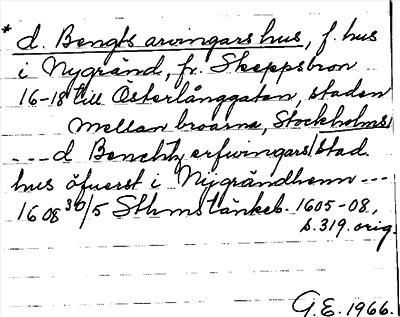 * d. Bengts arvingars hus, f. hus
i Nygränd, fr. Skeppsbron
16-18 till Österlånggatan, staden
mellan broarna, Stockholms
--- d Benchtz erfwingars stad.
hus öfuerst i Nygrändhenn ---
1608 30/5 Sthms tänkeb. 1605-08,
s. 319. orig.
G.E. 1966.